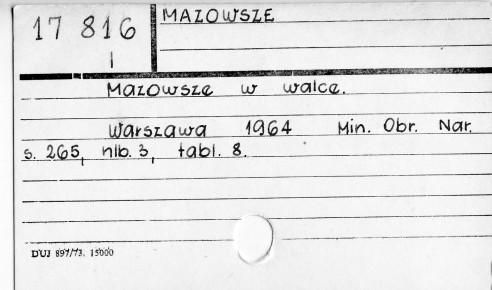 17 816
I
MAZOWSZE
Mazowsze w walce.
Warszawa 1964 Min. Obr. Nar.
s. 265, nlb. 3, tabl. 8.
DUJ 897/73. 15000